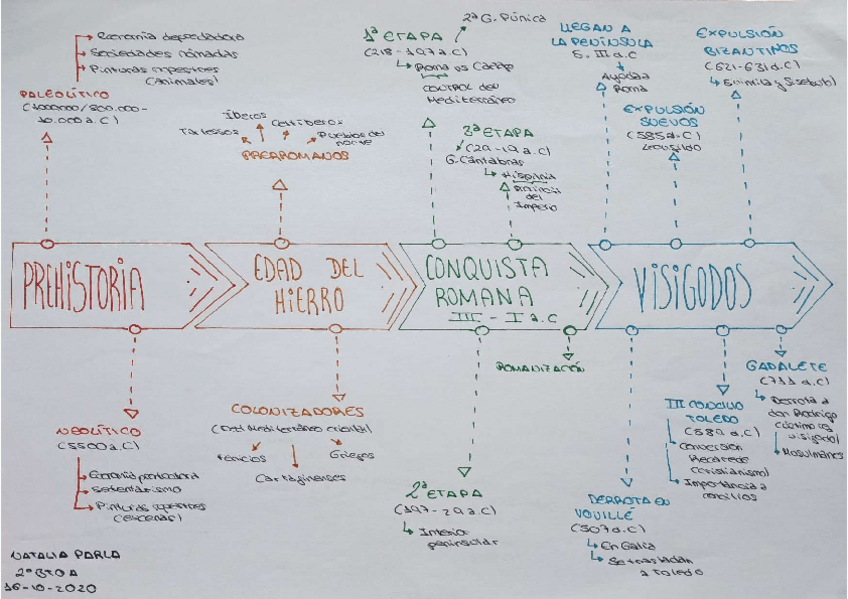 → Economía depredadora
→ Sociedades nómadas
→ Pinturas rupestres
(animales)
PALEOLÍTICO
10.000 a.C)
Íberos
Celtíberos
Tartessos
Pueblos del
norte
PRERROMANOS
2ª G. Púnica
1ª ETAPA
(218-197 a.C)
↳ Roma vs Cartago
CONTROL del
Mediterráneo
3ª ETAPA
(29-19 a.C)
G. Cántabras
↳ Hispania
provincia
del
Imperio
LLEGAN A
LA PENÍNSULA
Ayuda a
Roma
EXPULSIÓN
SUEVOS
(585 d.C)
Leovigildo
EXPULSIÓN
BIZANTINOS
(621-631 d.C)
↳ Suintila y Sisebuto)
PREHISTORIA
EDAD DEL
HIERRO
CONQUISTA
ROMANA
III - I a.c
VISIGODOS
NEOLÍTICO
(5500 a.C)
→ Economía productora
→ Sedentarismo
→ Pinturas rupestres
(escenas)
COLONIZADORES
(Del Mediterráneo oriental)
Fenicios
Griegos
Cartaginenses
ROMANIZACIÓN
2ª ETAPA
(197-29 a.C)
↳ Interior
peninsular
DERROTA EN
VOUILLÉ
(507 d.C)
↳ En Galia
↳ Se trasladan
a Toledo
III CONCILIO
TOLEDO
(589 d.C)
↳ Conversión
Recaredo
(cristianismo)
↳ Importancia a
concilios
GADALETE
(711 d.C)
↳ Derrota a
don Rodrigo
(último rey
visigodo)
↳ Musulmanes
NATALIA PARLA
2º BTO A
16-10-2020